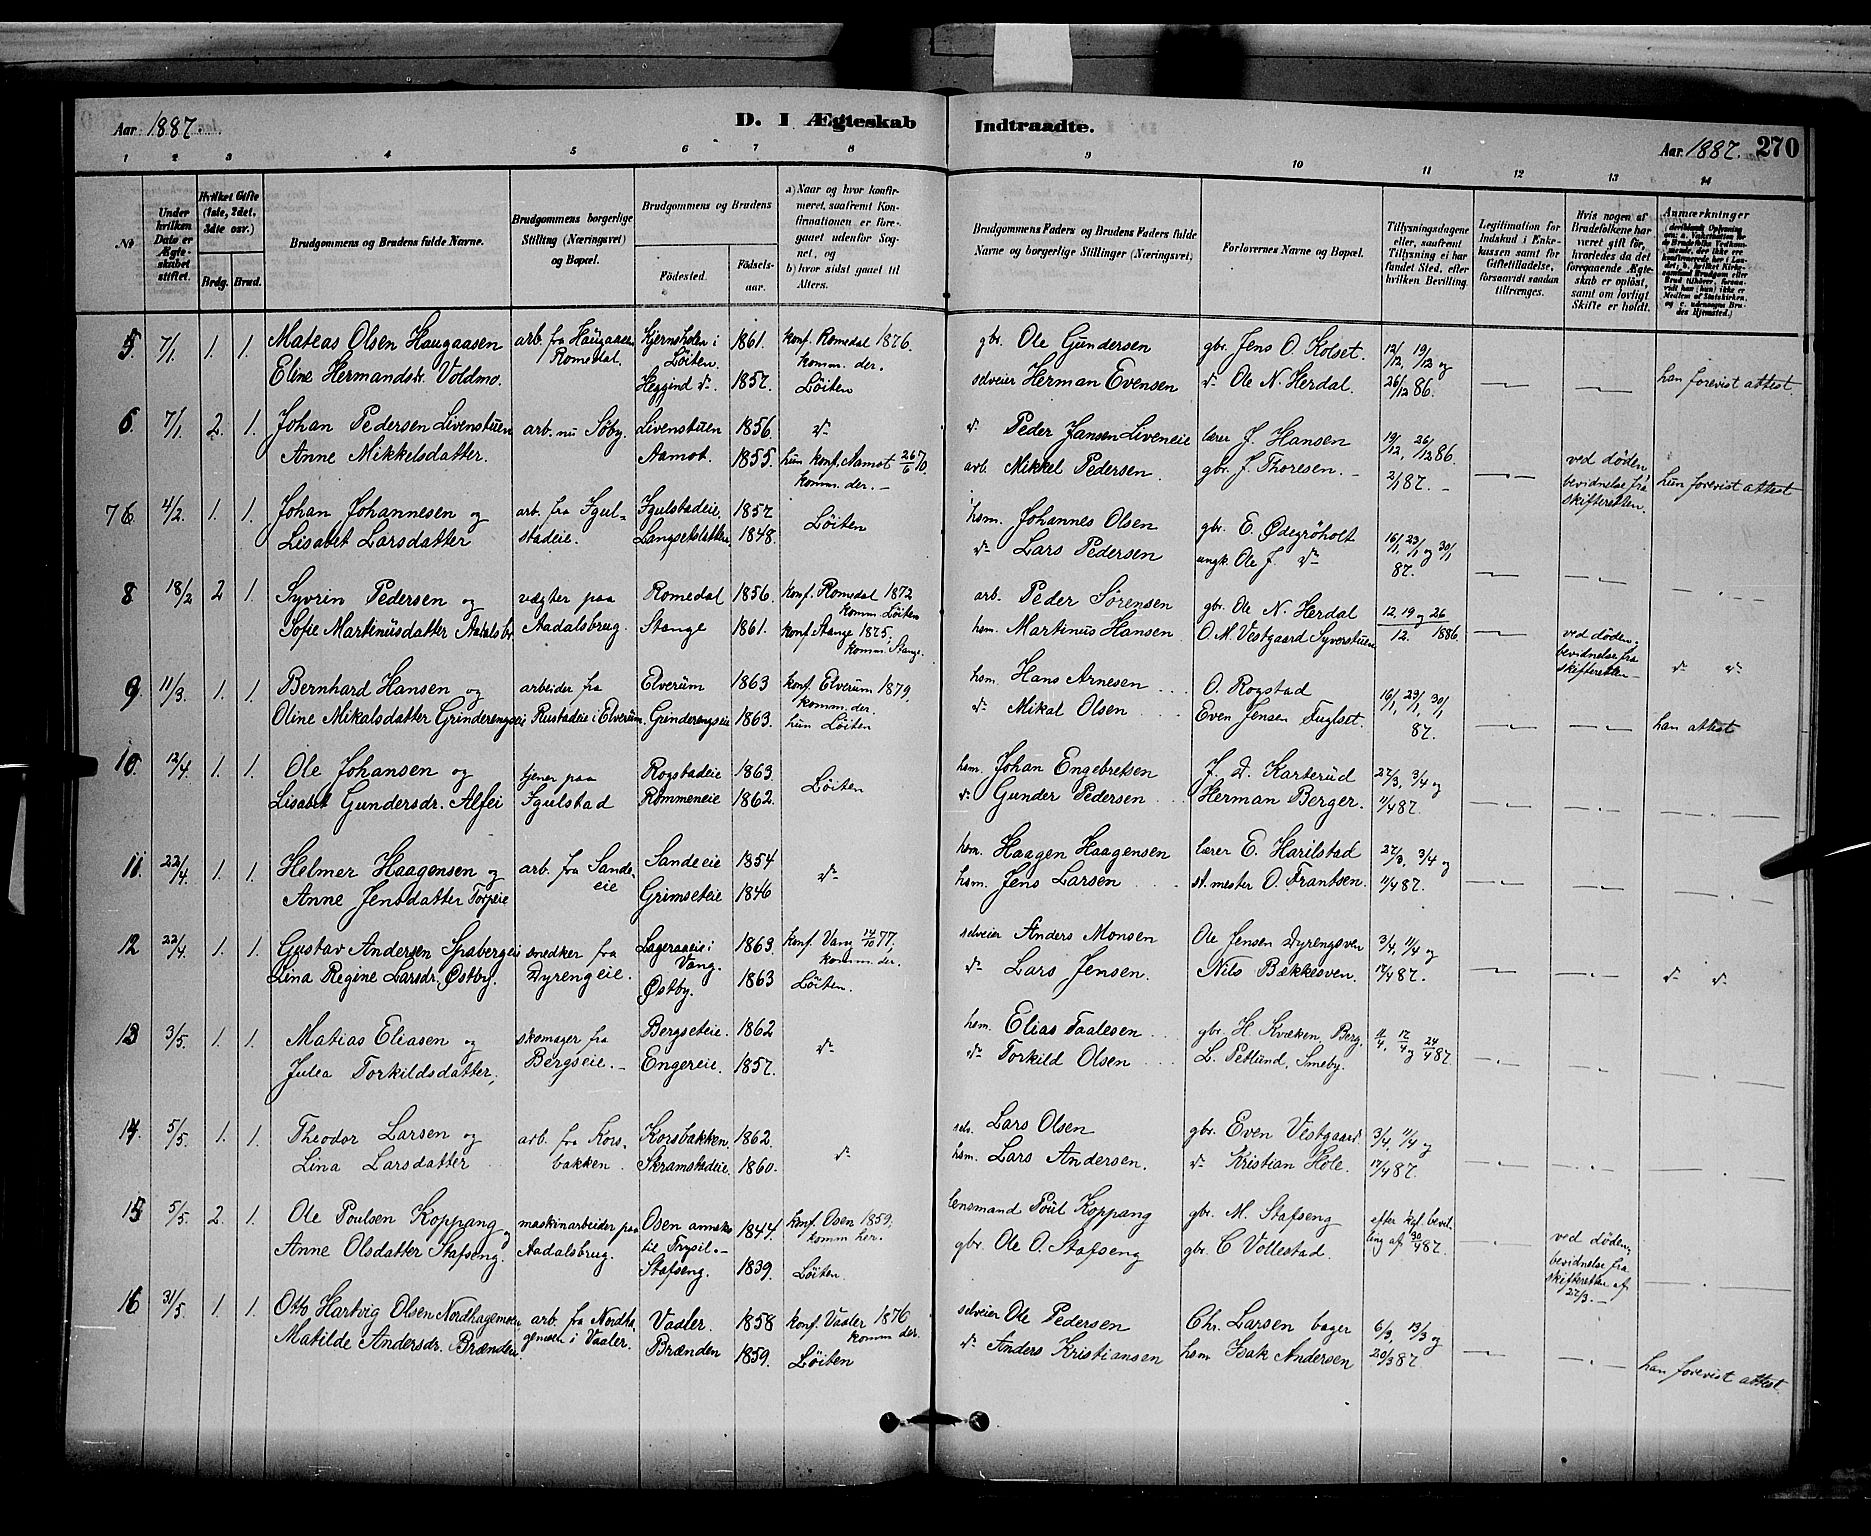 Aar 1887.
D. I Ægteskab Indtraadte.
Aar 1887. 270
1 2 3 4 5 6 7 8 9 10 11 12 13 14
No
Under hvilken Dato er Ægteskabet stiftet.
Hvilket Gifte (1ste, 2det, 3die osv.)
Brdg. Brud.
Brudgommens og Brudens fulde Navne.
Brudgommens borgerlige Stilling (Næringsvei) og Bopæl.
Brudgommens og Brudens
Fødested. Fødselsaar.
a) Naar og hvor konfirmeret, saafremt Konfirmationen er foregaaet udenfor Sognet, og
b) hvor sidst gaaet til Alters.
Brudgommens Faders og Brudens Faders fulde Navne og borgerlige Stillinger (Næringsvei)
Forlovernes Navne og Bopæl.
Tillysningsdagene eller, saafremt Tillysning ei har fundet Sted, efter hvilken Bevilling.
Legitimation for Indskud i Enkekassen samt for Giftetilladelse, forsaavidt saadan tiltrænges.
Hvis nogen af Brudefolkene har været gift før, hvorledes da det foregaaende Ægteskab er opløst, samt om lovligt Skifte er holdt.
Anmærkninger
5 7/1 1. 1. Mateas Olsen Haugaasen arb. fra Haugaasen Kjernsholen i 1861. konf. Romedal 1876. gbr. Ole Gundersen gbr. Jens O. Kolset. 12/12, 19/12 og
Eline Hermandsdr. Voldmo. Romedal. Løiten. komm. der.
Heggind do. 1857. Løiten selveier Herman Evensen do Ole N. Herdal. 26/12 86. — — han forevist attest
6. 7/1 2. 1. Johan Pedersen Livenstuen arb. nu Søby. Livenstuen 1856. do do Peder Jansen Liveneie lærer J. Hansen 19/12, 26/12 86.
Anne Mikkelsdatter. Aamot. 1855. hun konf. Aamot 26/6 70 arb. Mikkel Pedersen. gbr. J. Thoresen. — 2/1 87. — — ved døden,
komm. der. — bevidnelse fra hun forevist attest
skifteretten.
7 4/2. 1. 1. Johan Johannesen og arb. fra Igul- Igulstadeie. 1857 Løiten hsm. Johannes Olsen gbr. E. Ødegrøholt 16/1, 23/1 og 30/1
Lisabet Larsdatter stadeie. Langsetsletten 1848. do Lars Pedersen ungk. Ole J. do 87. — —
8 18/2 2 1. Syvrin Pedersen og vægter paa Romedal 1856. konf. Romedal 1872 arb. Peder Sørensen gbr. Ole N. Herdal 12, 19 og 26
komm. Løiten
Sofie Martinusdatter Aadalsbr Aadalsbrug. Stange 1861. konf. Stange 1875; hsm. Martinus Hansen O. M. Vestgaard Syverstuen 12. 1886. — ved døden.
komm. Stange. bevidnelse fra
skifteretten do do
9. 11/3. 1. 1. Bernhard Hansen og arbeider fra Elverum 1863 konf. Elverum 1879, hsm Hans Arnesen O. Rogstad 16/1, 23/1, 30/1
komm. der.
Oline Mikalsdatter Grinderengseie Rustadeie i Elverum. Grinderengseie 1863. hun Løiten do Mikal Olsen Even Jensen Fuglset. 87. — — han attest
10. 12/4. 1. 1. Ole Johansen og tjener paa Rogstadeie 1863. Løiten hsm. Johan Engebretsen J. D. Karterud 27/3, 3/4 og
Lisabet Gundersdr. Alfei Igulstad Rommeneie 1862. do Gunder Pedersen Herman Berger. 11/4 87. — —
11. 22/4. 1. 1. Helmer Haagensen og arb. fra Sands- Sandeeie 1854 do hsm. Haagen Haagensen lærer E. Harilstad 27/3, 3/4 og
Anne Jensdatter Torpeie eie Grimseteie 1846 hsm. Jens Larsen st. mester O. Frantsen. 11/4 87. — —
12 22/4. 1. 1. Gustav Andersen Spabergeie snedker fra Lageraaeis i 1863. konf. Vang 14/10 77, selveier Anders Monsen Ole Jensen Dyrengsven 3/4, 11/4 og
Vang. komm. der.
Lina Regine Larsdr. Østby. Dyrengeie. Østby. 1863 Løiten. do Lars Jensen. Nils Bækkesven. 17/4 87. — — do do
13 3/5. 1. 1. Matias Eliasen og skomager fra Bergseteie 1862 do hsm. Elias Taalesen gbr. H. Kvæken, Berg. 11/4, 17/4 og 24/4 87.
Julea Torkildsdatter, Bergseie. — Engereie. 1857. do Torkild Olsen L. Petlund, Smeby. — —
14 5/5. 1. 1. Theodor Larsen og arb. fra Kors- Korsbakken. 1862. do selv. Lars Olsen gbr. Even Vestgaard 3/4, 11/4 og
Lina Larsdatter bakken. Skramstadeie. 1860. hsm. Lars Andersen. do Kristian Hole. 17/4 87. — —
15 5/5. 2. 1. Ole Poulsen Koppang og maskinarbeider paa Osen anneks 1844. konf. Osen 1859, lensmand Poul Koppang gbr. M. Stafseng efter kgl. bevil-
komm. her.
Anne Olsdatter Stafseng. Aadalsbrug. til Trysil. — gbr. Ole O. Stafseng gbr. C. Vollestad. ling af 30/4 87. — ved døden,
Stafseng. 1839. Løiten. bevidnelse fra
skifteretten af
27/3. —
16 31/5. 1. 1. Otto Hartvig Olsen Nordhagemoen arb. fra Nordha- Vaaler. 1858 konf. Vaaler 1876 selveier Ole Pedersen Chr. Larsen bager 6/3, 13/3 og
komm der.
Matilde Andersdr. Brænden. gemoen i Vaaler. Brænden 1859. Løiten do Anders Kristiansen hsm Isak Andersen 20/3 87. — — han forevist attest.